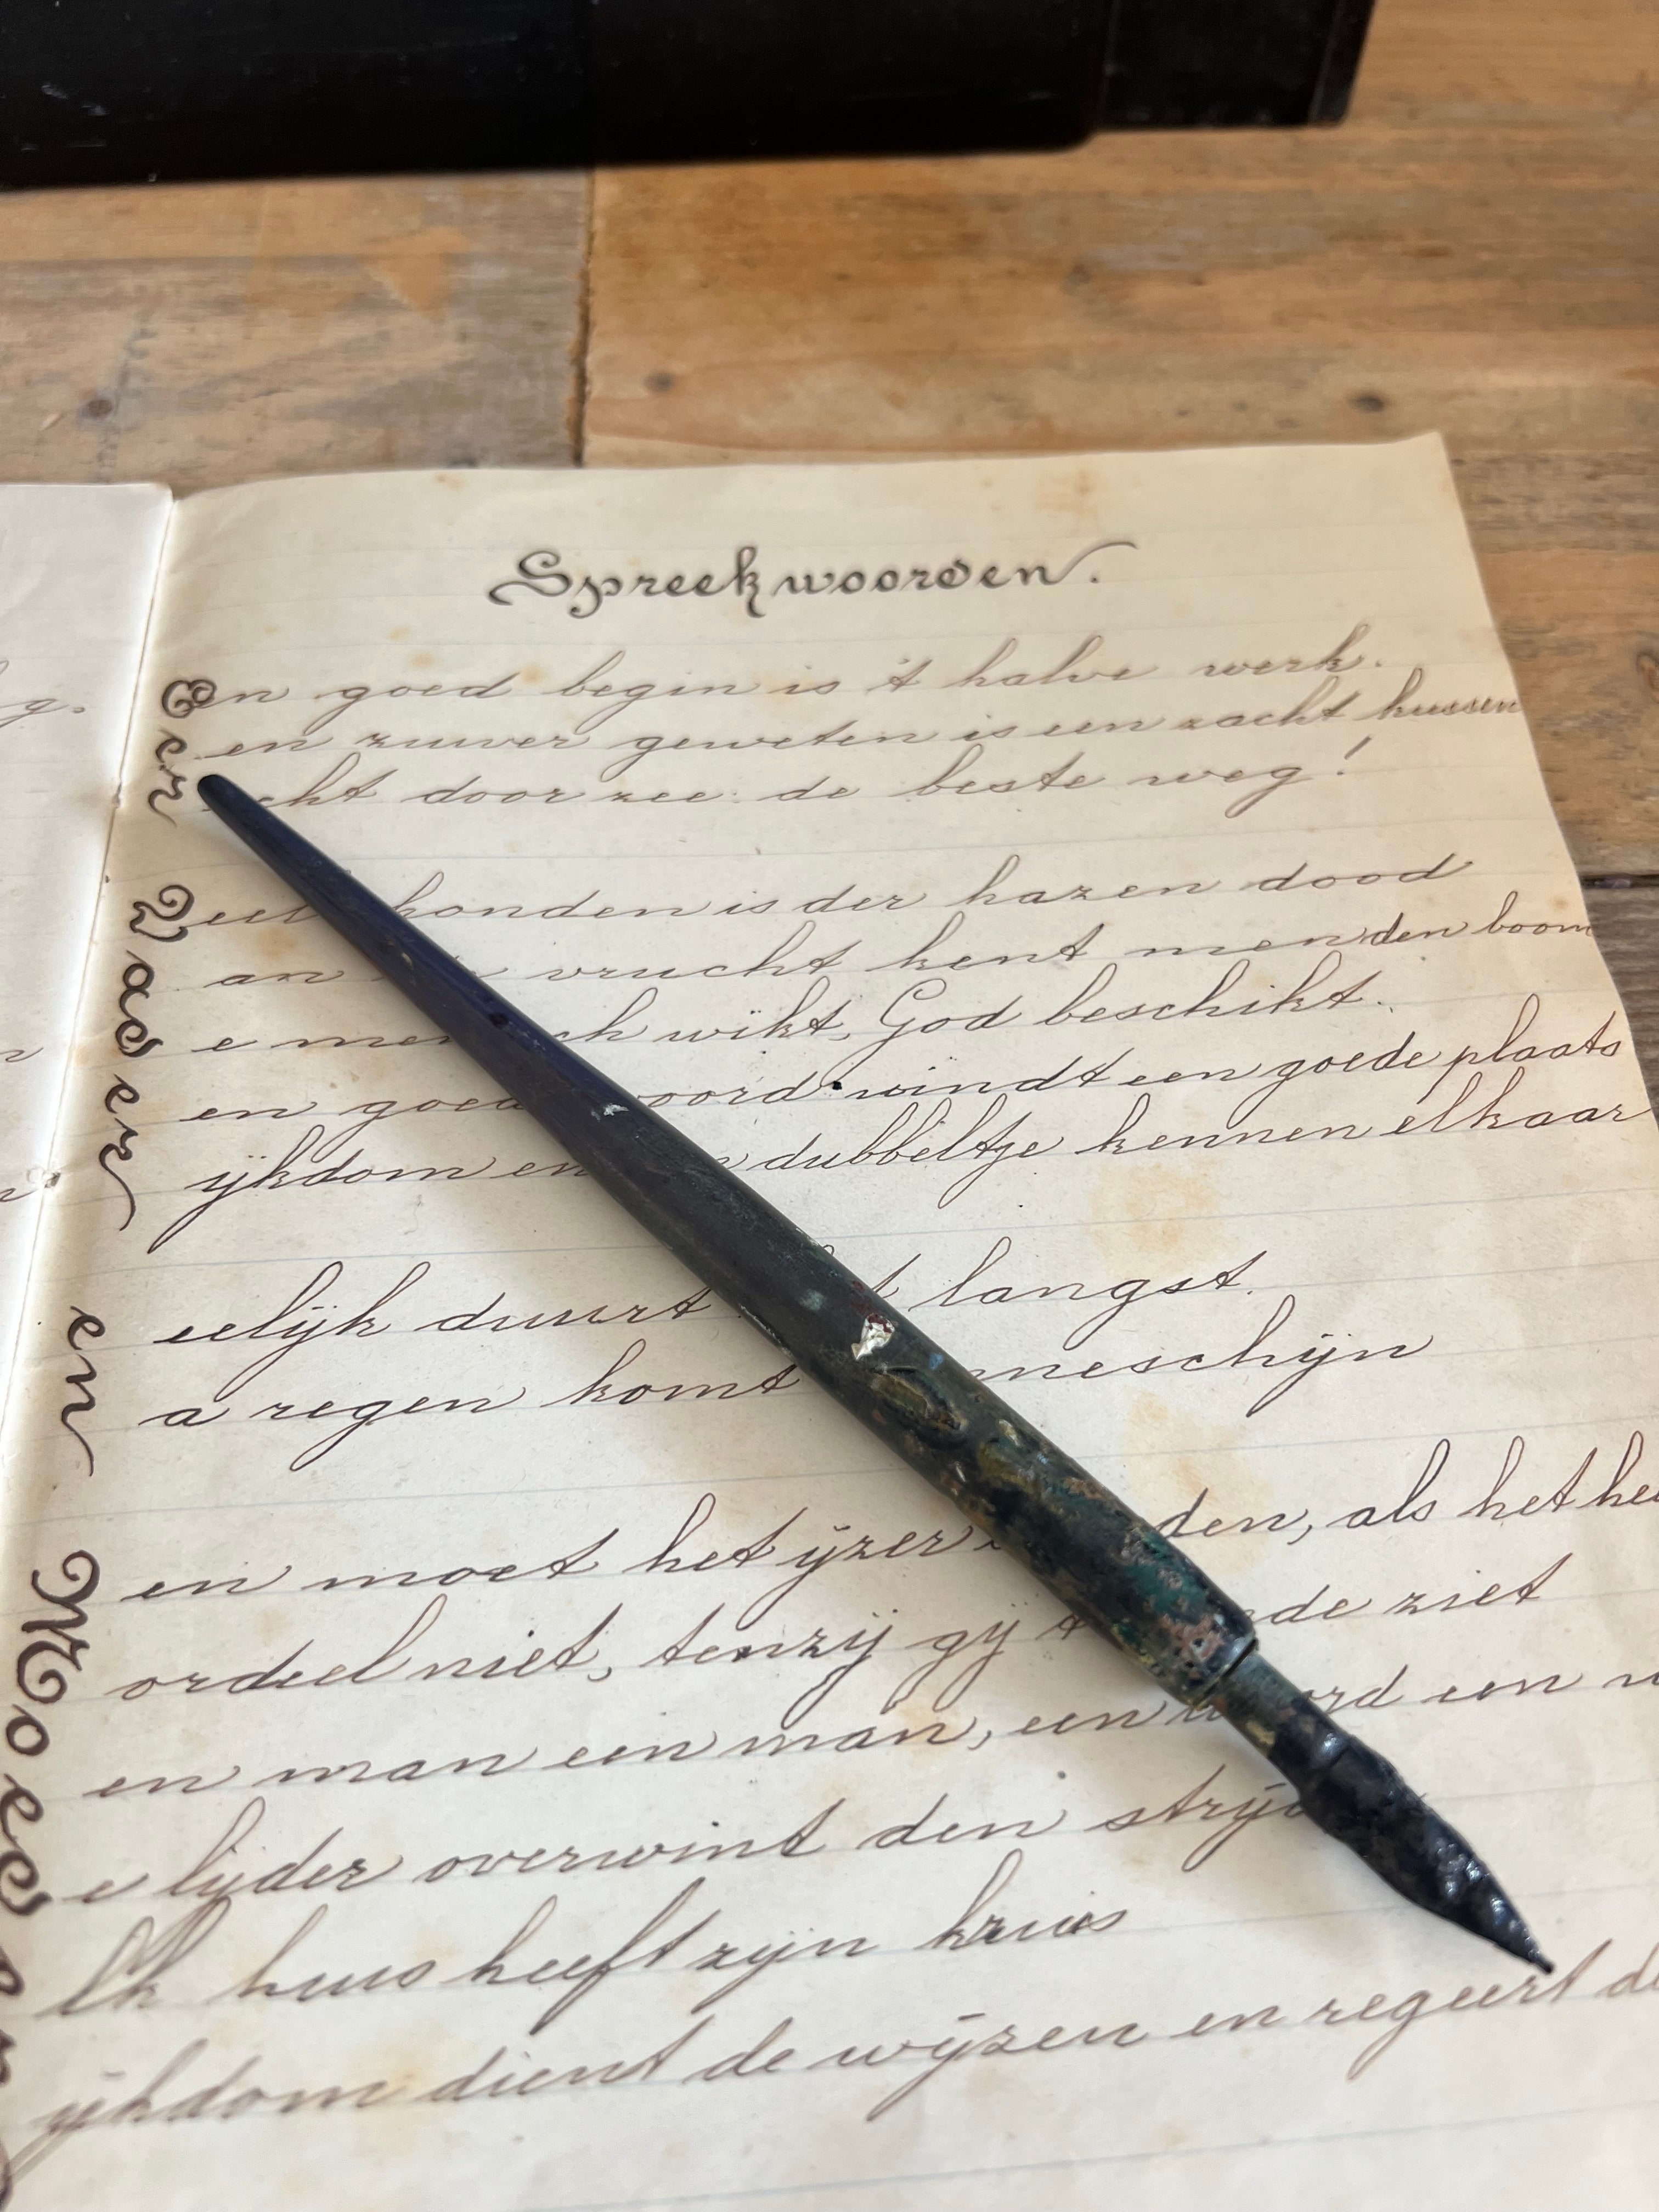 Spreekwoorden.
Een goed begin is 't halve werk.
een zuiver geweten is een zacht kussen
recht door zee: de beste weg!
Veel honden is der hazen dood
aan vrucht kent men den boom
de mensch wikt, God beschikt.
een goed woord vindt een goede plaats
rijkdom en dubbeltje kennen elkaar
eerlijk duurt langst.
na regen komt zonneschijn
Men moet het ijzer den, als het hee
oordeel niet, tenzij gij 't einde ziet
een man een man, een woord een w
de lijder overwint den strijd
elk huis heeft zijn kruis
rijkdom dient de wijzen en regeert de